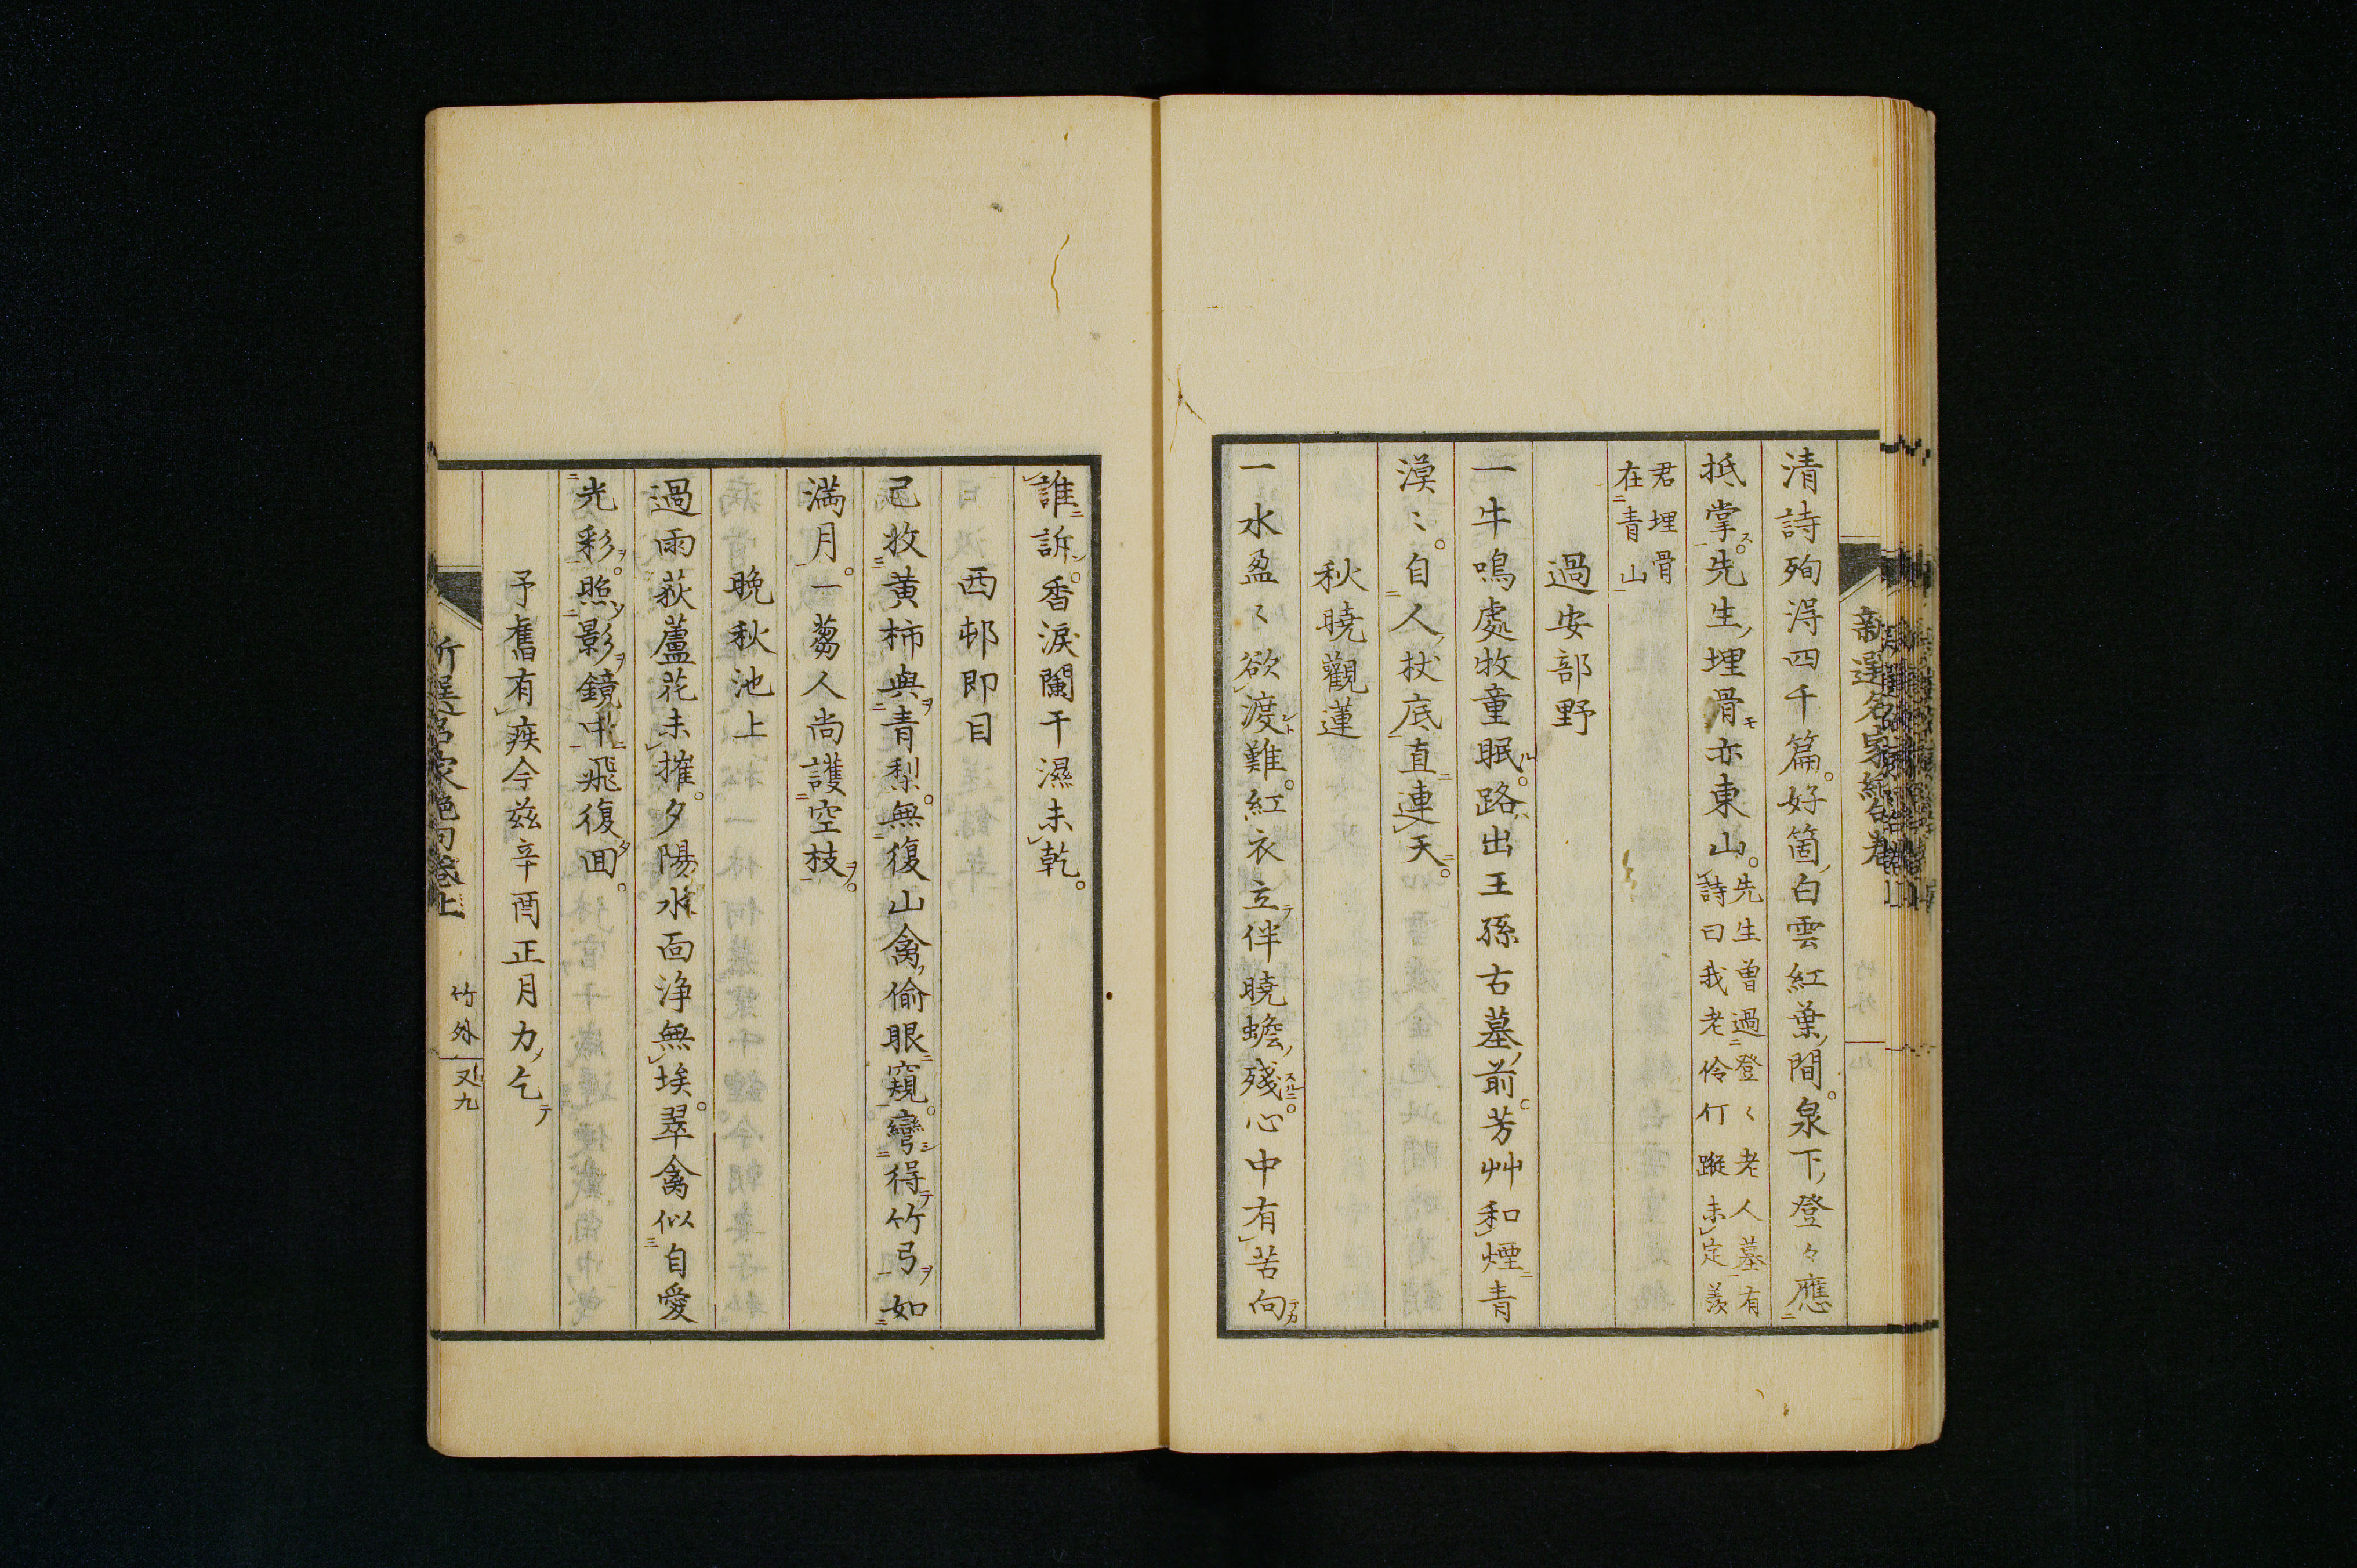 新選名家絶句卷
清詩殉淂四千篇。好箇白雲紅葉間。泉下登々應
抵掌。先生埋骨亦東山。先生曽過登〻老人墓有
詩曰我老伶仃蹤未定羨
君埋骨
在青山
過安部野
一牛鳴處牧童眠。路出王孫古墓前。芳艸和煙青
漠〻。自人杖底直連天。
秋曉觀蓮
一水盈〻欲渡難。紅衣立伴曉蟾殘。心中有苦向
誰訴。香淚闌干濕未乾。
西邨即目
已收黄柿與青梨。無復山禽偷眼窺。彎得竹弓如
満月。一蒭人尚護空枝。
晚秋池上
過雨荻蘆花未摧。夕陽水面浄無埃。翠禽似自愛
光彩。照影鏡中飛復回。
予舊有疾今茲辛酉正月力乞
新選名家絶句卷上
竹外
又九